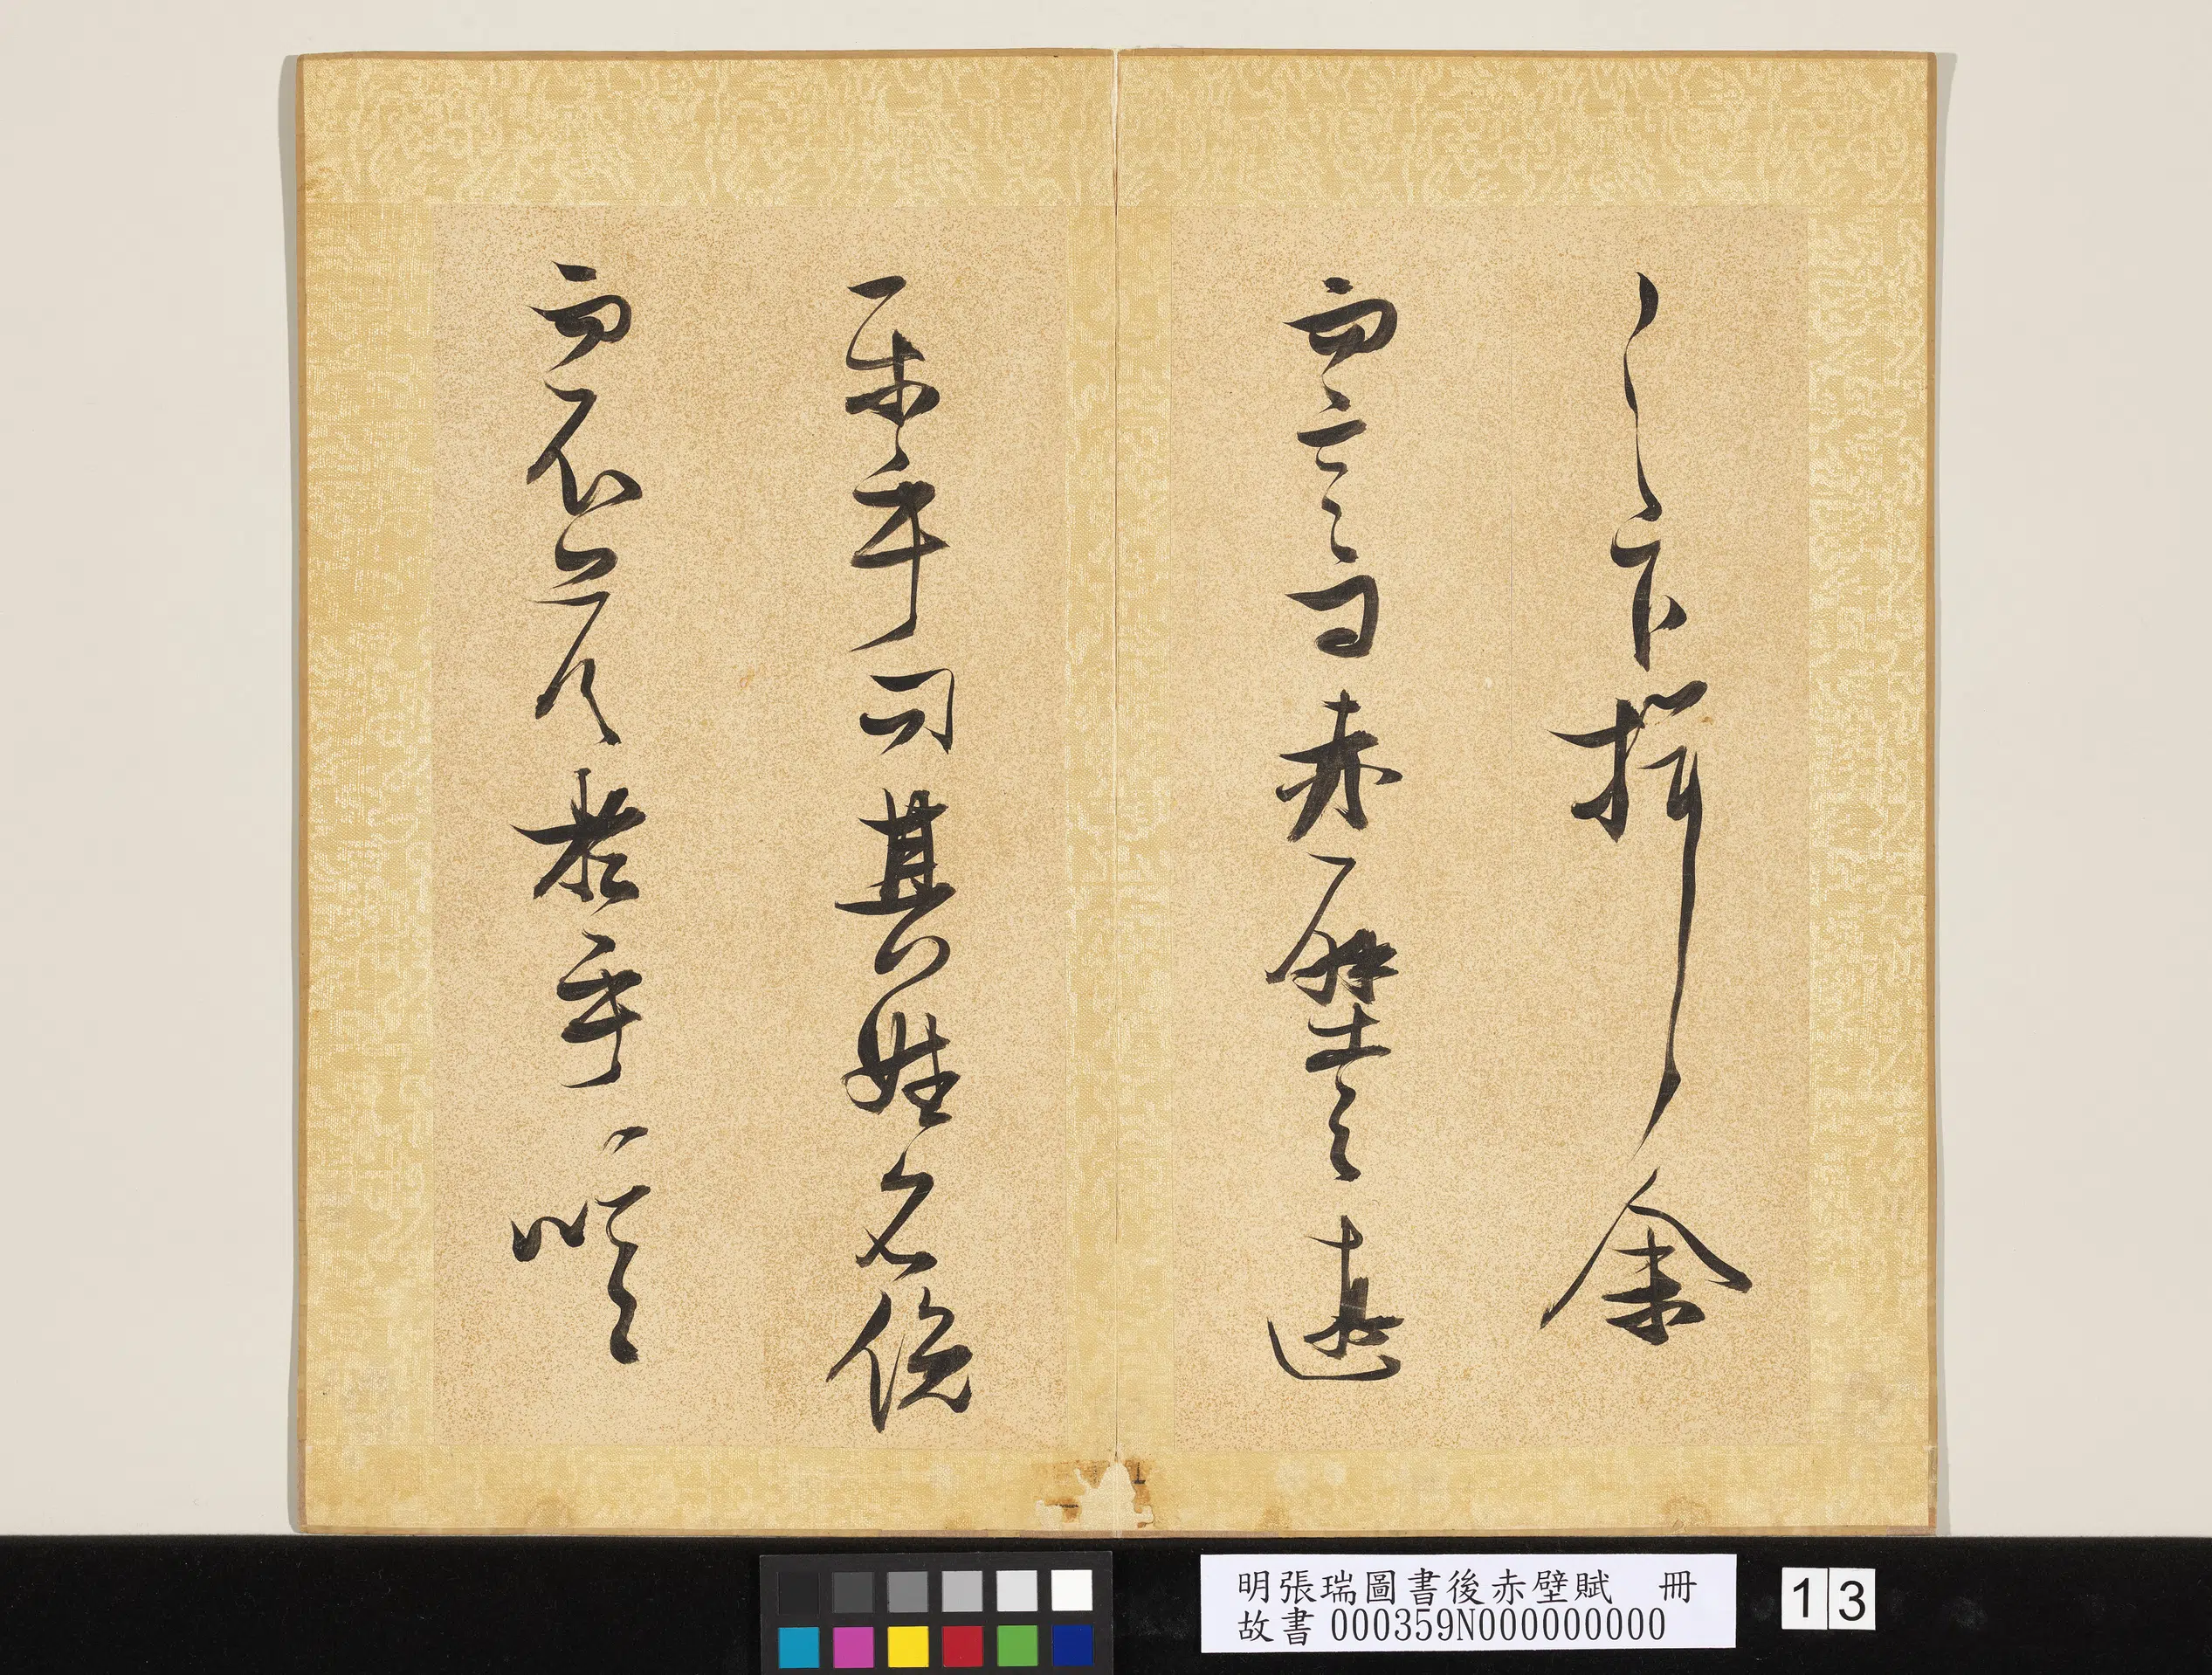 之下揖余
而言曰赤壁之遊
樂乎問其姓名俛
而不答於乎噫
明張瑞圖書後赤壁賦 冊
故書 000359N000000000
13